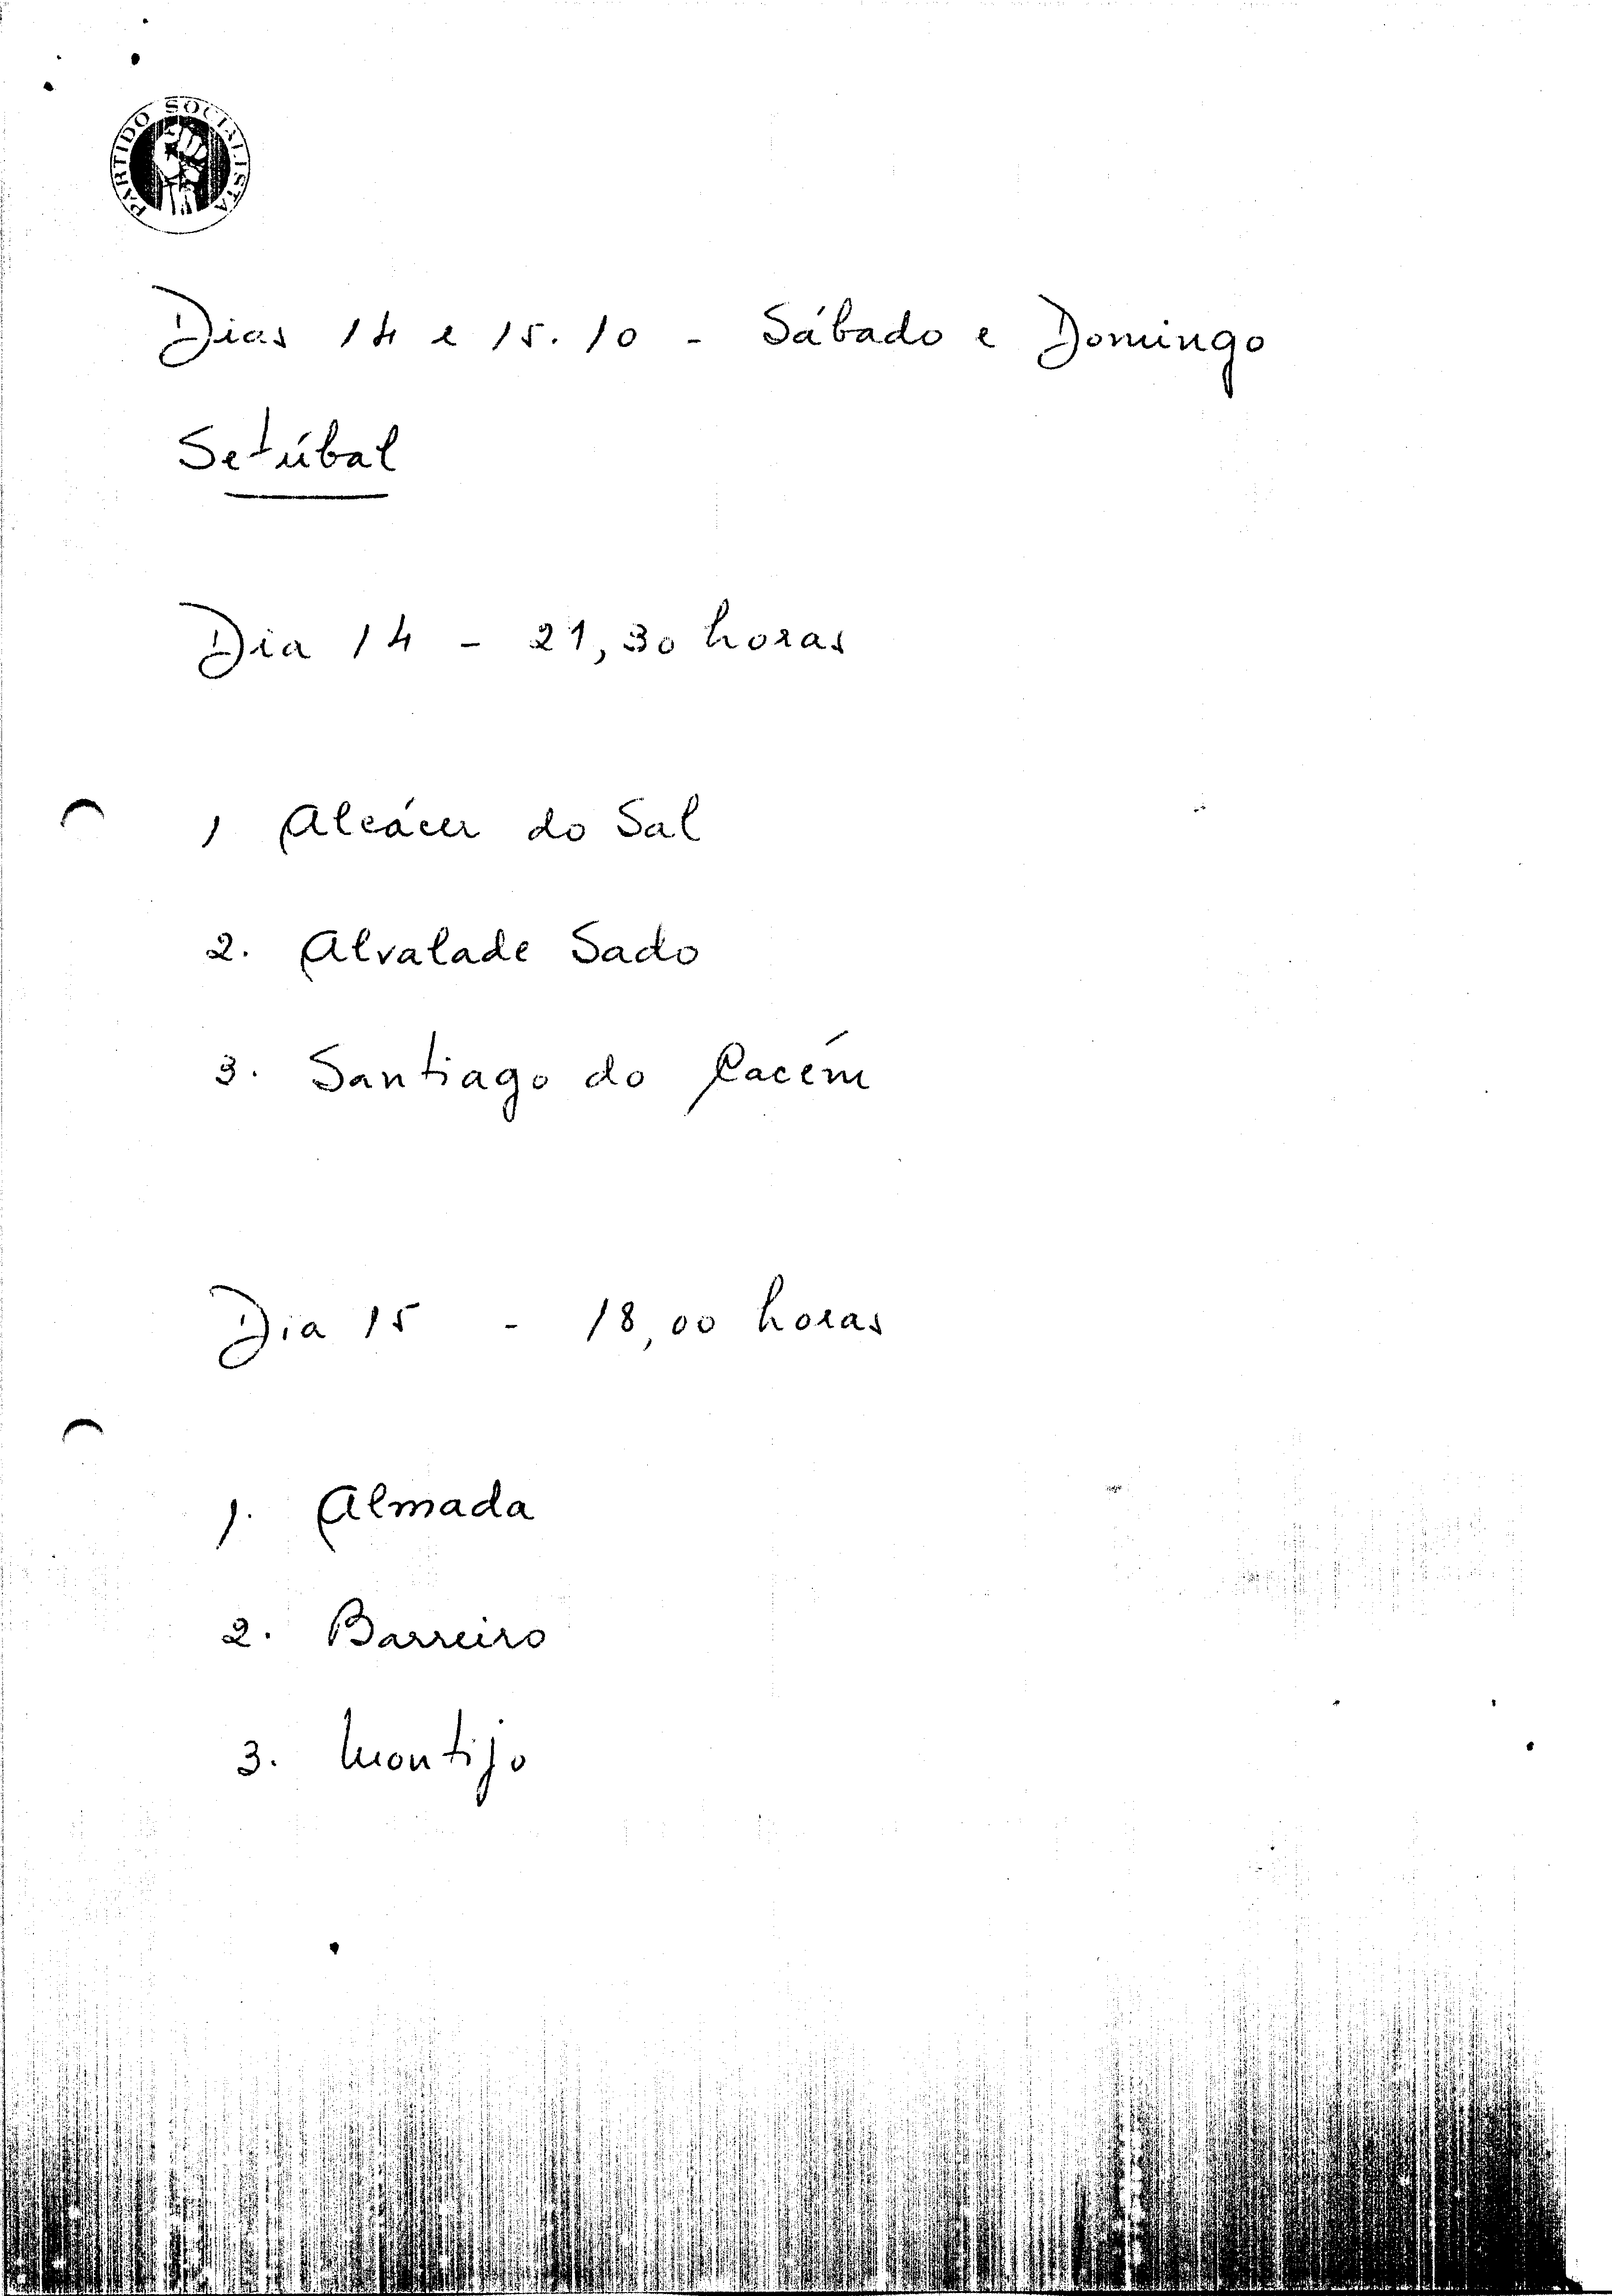 PARTIDO SOCIALISTA
Dias 14 e 15.10 - Sábado e Domingo
Setúbal
Dia 14 - 21,30 horas
1 Alcácer do Sal
2. Alvalade Sado
3. Santiago do Cacém
Dia 15 - 18,00 horas
1. Almada
2. Barreiro
3. Montijo